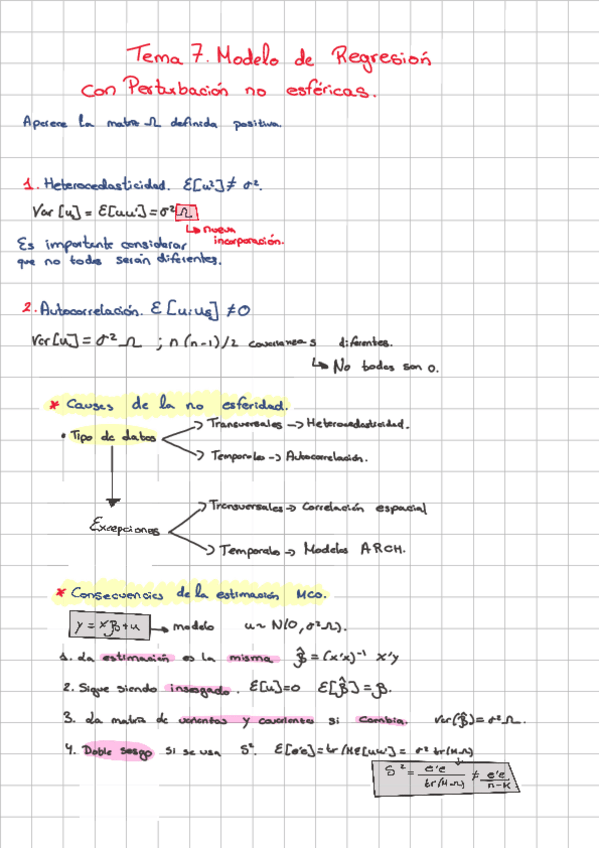 Tema 7. Modelo de Regresión
con Perturbación no esféricas.
Aparece la matriz Ω definida positiva.
1. Heterocedasticidad. E[u²] ≠ σ².
Var [u] = E[uu'] = σ² Ω
↳ nueva
incorporación.
Es importante considerar
que no todas serán diferentes.
2. Autocorrelación. E[uᵢuₛ] ≠ 0
Var[u] = σ² Ω ; n(n-1)/2 covarianzas diferentes.
↳ No todas son 0.
* Causas de la no esferidad.
• Tipo de datos
→ Transversales → Heterocedasticidad.
→ Temporales → Autocorrelación.
Excepciones
→ Transversales → Correlación espacial
→ Temporales → Modelos ARCH.
* Consecuencias de la estimación MCO.
y = xβ + u → modelo u ~ N(0, σ²Ω).
1. La estimación es la misma β̂ = (x'x)⁻¹ x'y
2. Sigue siendo insesgado. E[u]=0 E[β̂] = β.
3. La matriz de varianzas y covarianzas si cambia. Var(β̂) = σ² Ω.
4. Doble sesgo si se usa S². E[e'e] = tr(ME[uu'] = σ² tr(MΩ)
S² = e'e / tr(MΩ) ≠ e'e / n-K